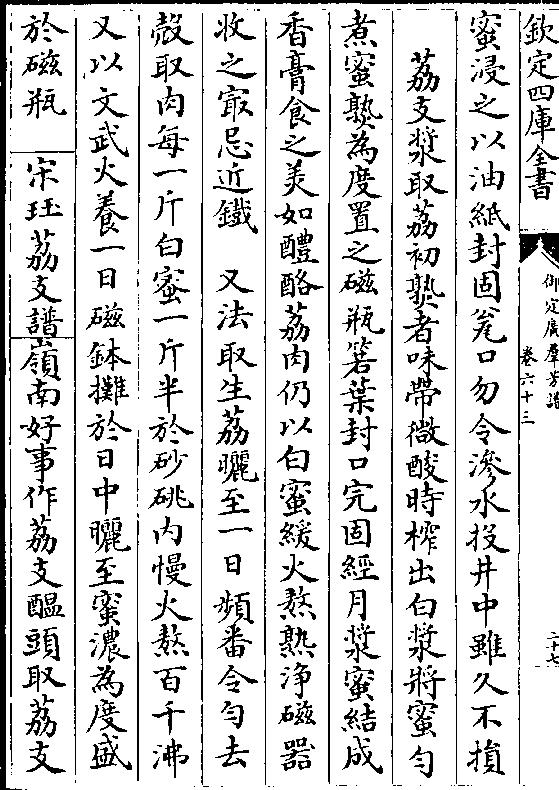 欽定四庫全書
御定廣羣芳譜
卷六十三
二十七
蜜浸之以油紙封固瓮口勿令滲水投井中雖久不損
荔支漿取荔初熟者味帶微酸時榨出白漿將蜜勻
煮蜜熟為度置之磁瓶箬葉封口完固經月漿蜜結成
香膏食之美如醴酪荔肉仍以白蜜緩火熬熟净磁器
收之㝡忌近鐵　又法取生荔曬至一日頻番令勻去
殻取肉每一斤白蜜一斤半於砂銚内慢火熬百千沸
又以文武火養一日磁鉢攤於日中曬至蜜濃為度盛
於磁瓶　宋珏荔支譜嶺南好事作荔支醖頭取荔支